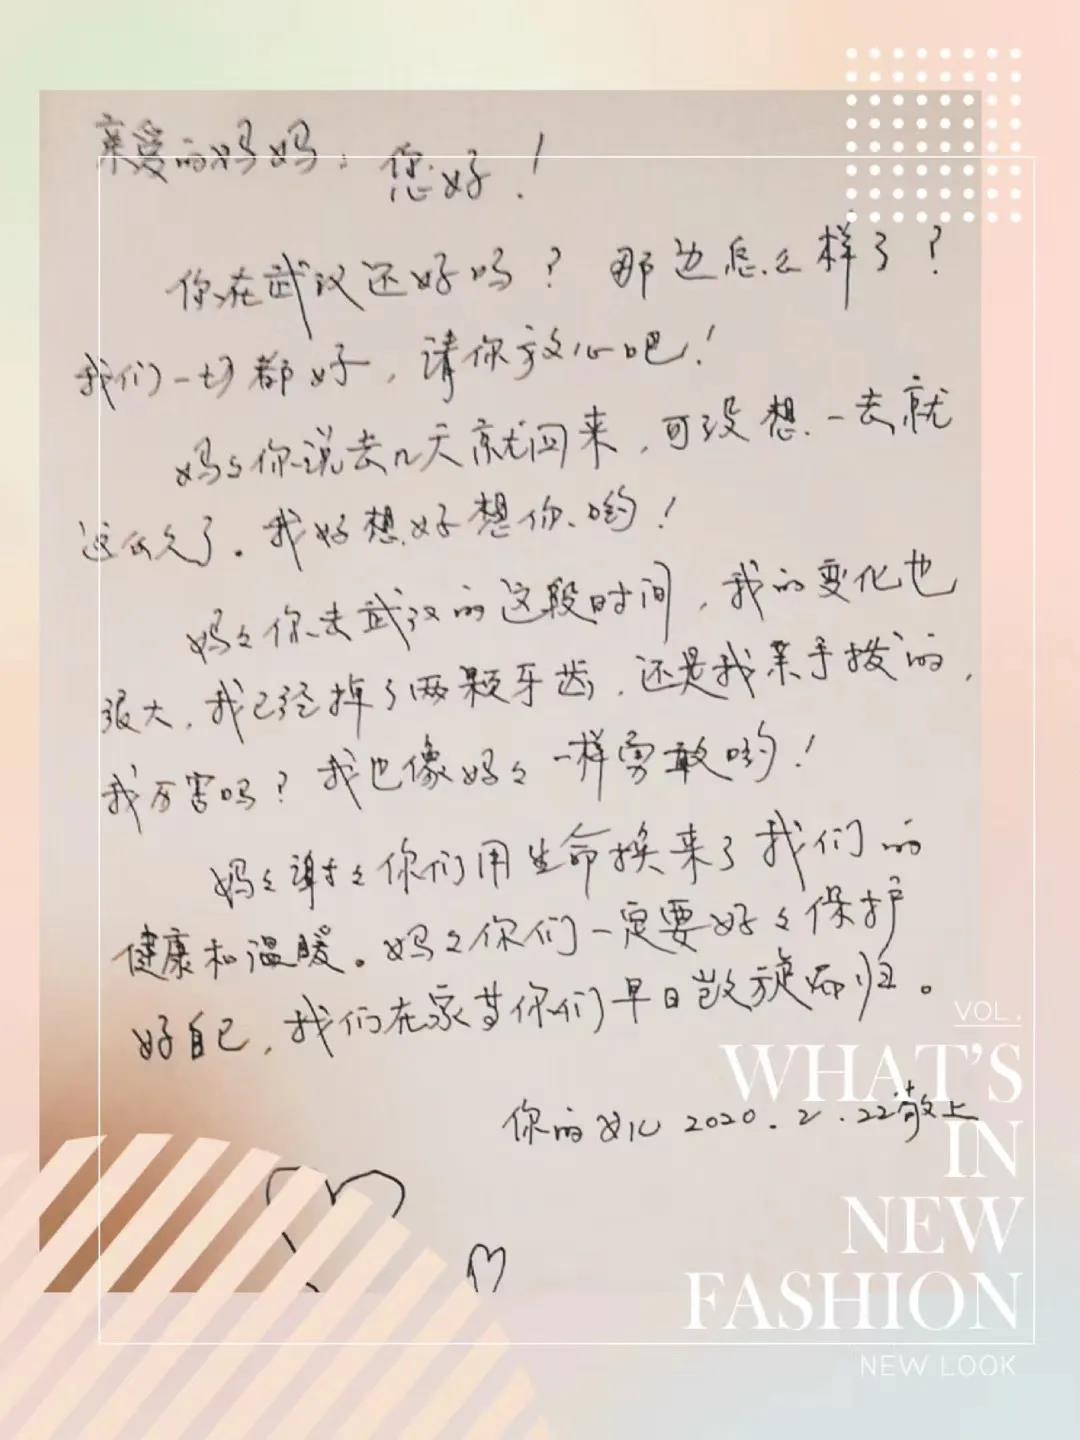 亲爱的妈妈：您好！
你在武汉还好吗？那边怎么样了？
我们一切都好，请你放心吧！
妈々你说去几天就回来，可没想一去就
这么久了。我好想好想你哟！
妈々你去武汉的这段时间，我的变化也
很大，我已经掉了两颗牙齿，还是我亲手拔的，
我厉害吗？我也像妈々一样勇敢哟！
妈々谢々你们用生命换来了我们的
健康和温暖。妈々你们一定要好々保护
好自己，我们在家等你们早日凯旋而归。
你的女儿 2020.2.22敬上
VOL.
WHAT'S
IN
NEW
FASHION
NEW LOOK